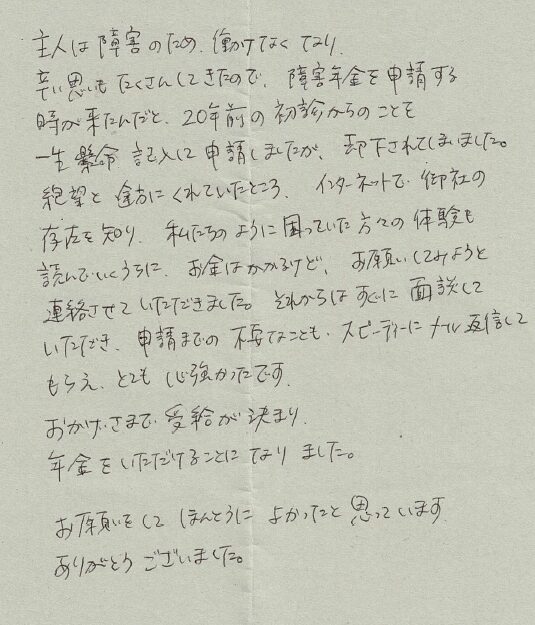 主人は障害のため、働けなくなり、
辛い思いもたくさんしてきたので、障害年金を申請する
時が来たんだと、20年前の初診からのことを
一生懸命 記入して申請しましたが、却下されてしまいました。
絶望と途方にくれていたところ、インターネットで御社の
存在を知り、私たちのように困っていた方々の体験も
読んでいくうちに、お金はかかるけど、お願いしてみようと
連絡させていただきました。それからはすぐに面談して
いただき、申請までの不安なことも、スピーディーにメール返信して
もらえ、とても心強かったです。
おかげさまで受給が決まり、
年金をいただけることになりました。
お願いをしてほんとうによかったと思っています
ありがとうございました。